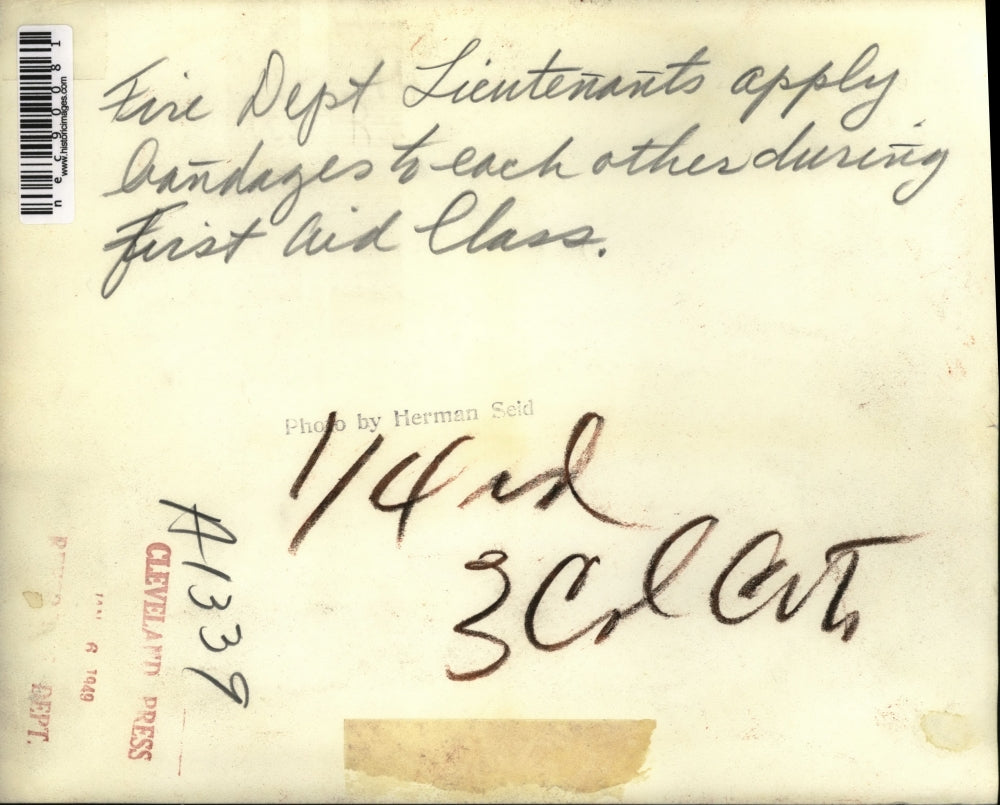 Fire Dept Lieutenants apply
bandages to each other during
First Aid Class.
Photo by Herman Seid
1/4 ed
3 Col Cut
A1339
CLEVELAND PRESS
JAN 6 1949
DEPT.
www.historicimages.com
nec90081